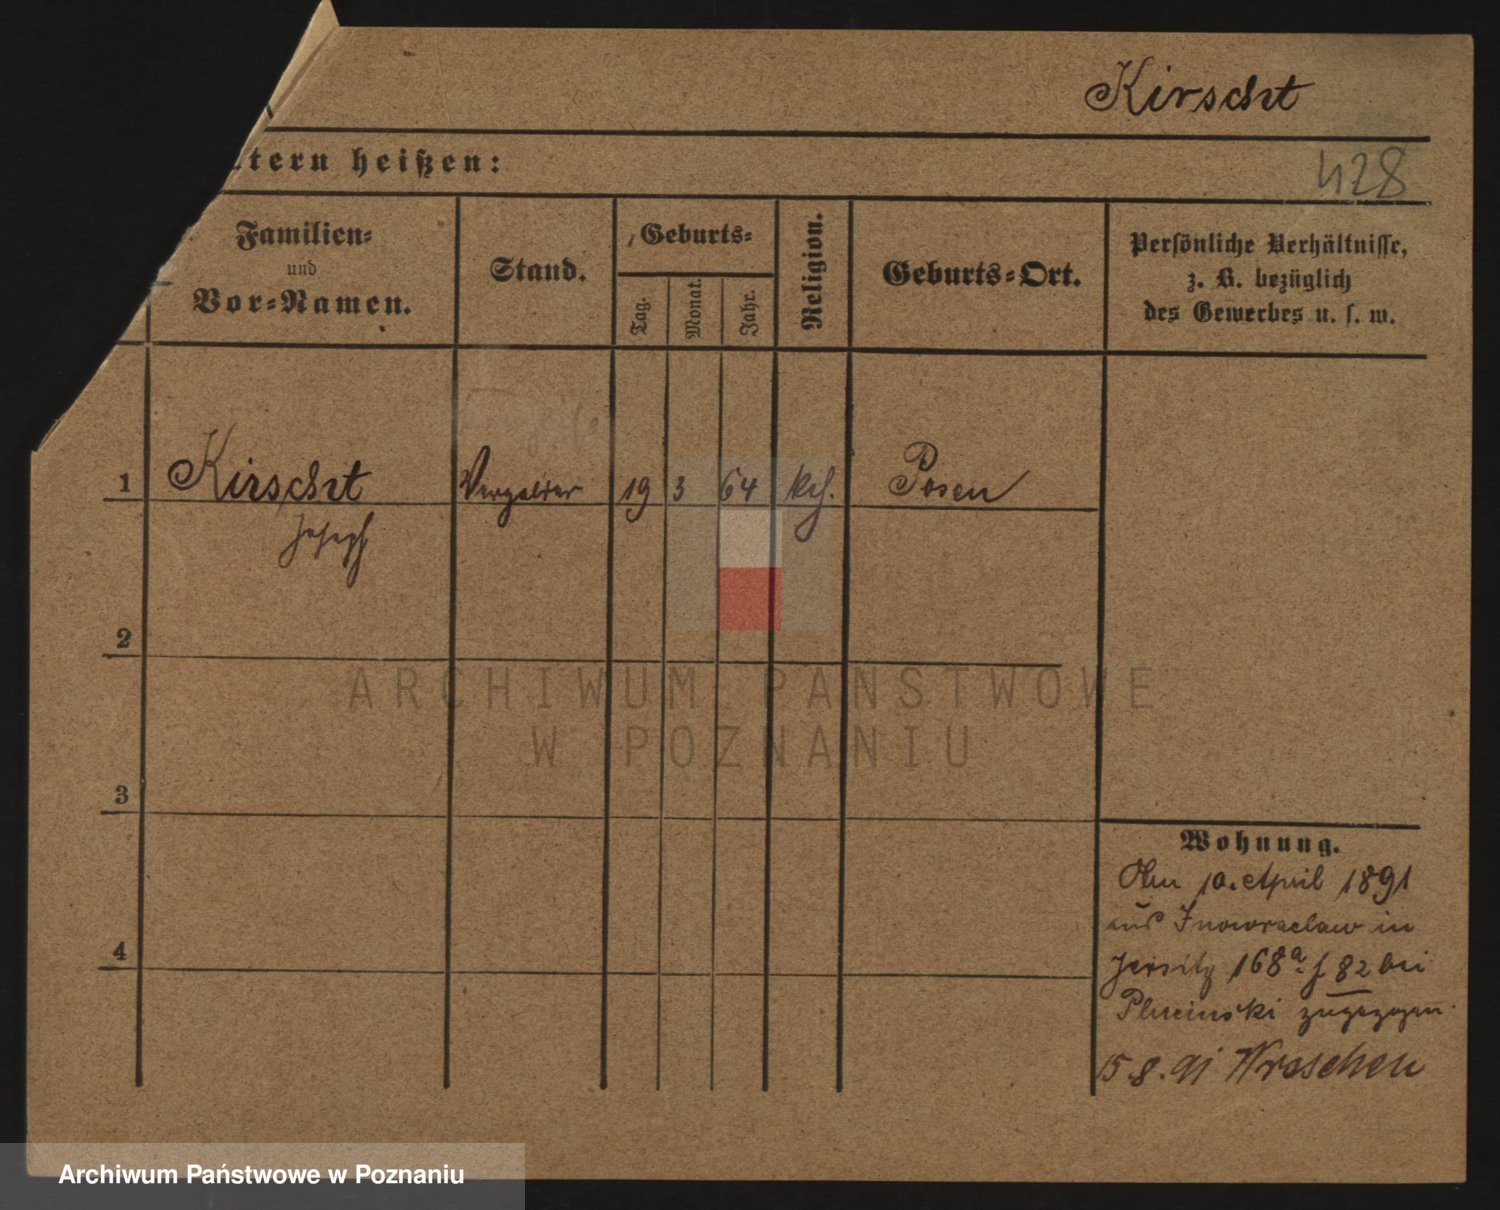 Kirscht
tern heißen:
428
Familien-
und
Vor-Namen.
Stand.
Geburts-
Tag.
Monat.
Jahr.
Religion.
Geburts-Ort.
Persönliche Verhältnisse,
z. B. bezüglich
des Gewerbes u. s. w.
1 Kirscht Vergolder 19 3 64 kth. Posen
Joseph
2
ARCHIWUM PAŃSTWOWE
W POZNANIU
3
Wohnung.
Am 10. April 1891
aus Inowraclaw in
4
Jersitz 168a. f 82 bei
Plucinski zugezogen
15.8.91 Wreschen
Archiwum Państwowe w Poznaniu